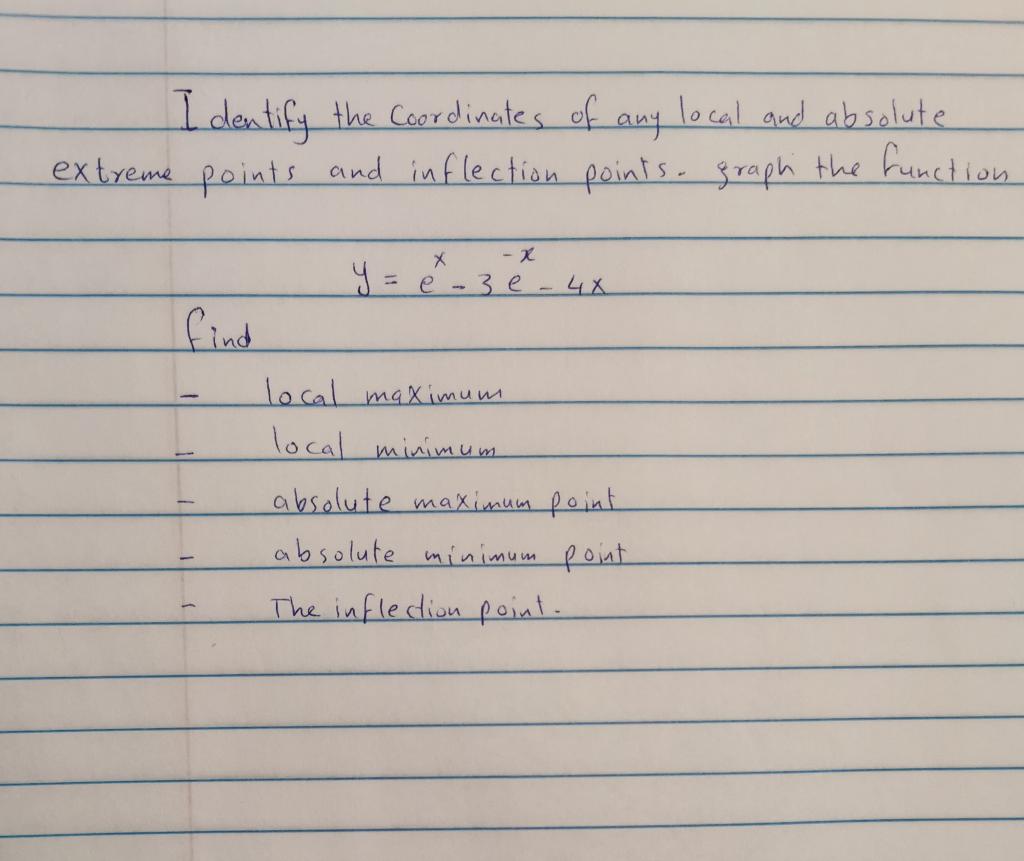 Identify the Coordinates of any local and absolute
extreme points and inflection points. graph the function
y = e^x - 3e^-x - 4x
find
- local maximum
- local minimum
- absolute maximum point
- absolute minimum point
- The inflection point.